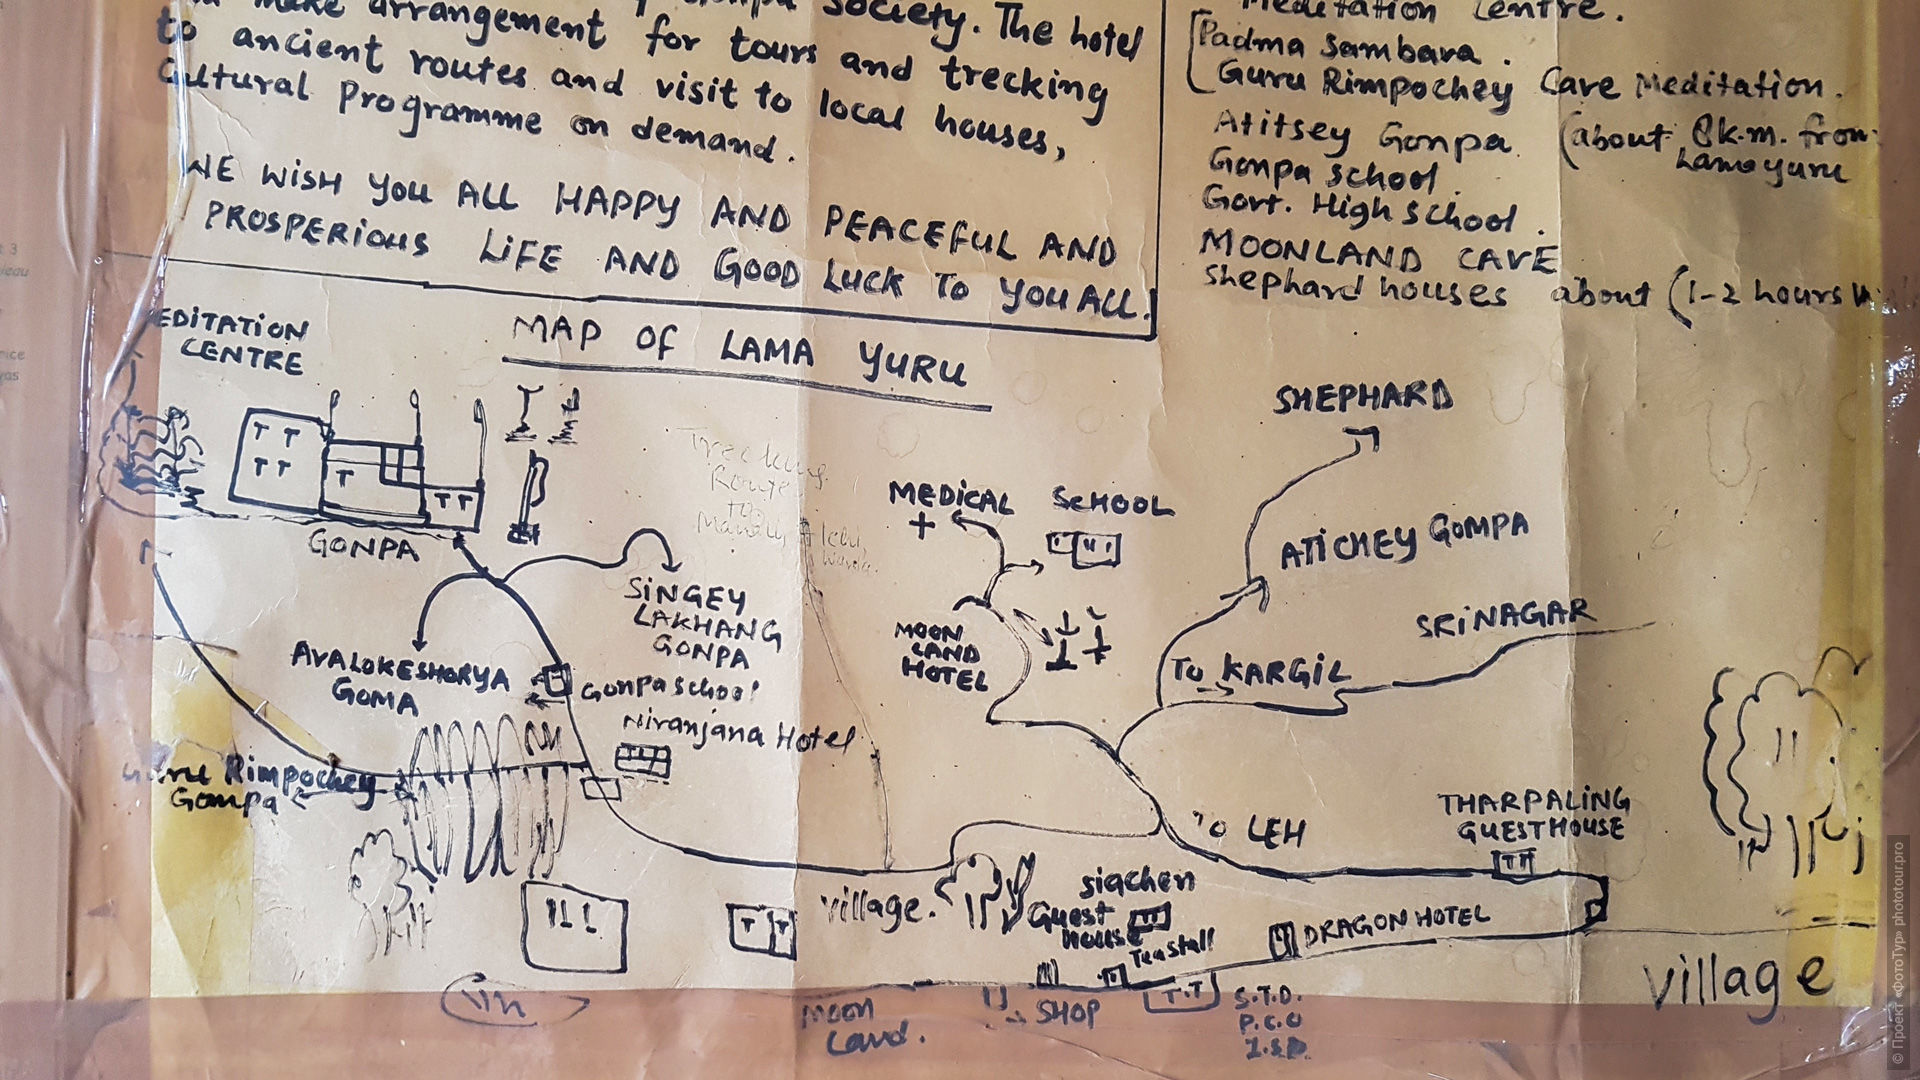 make arrangement for tours and trecking
Society. The hotel
to ancient routes and visit to local houses,
Cultural Programme on demand.
WE WISH YOU ALL HAPPY AND PEACEFUL AND
PROSPERIOUS LIFE AND GOOD LUCK TO YOU ALL.
Meditation Centre.
Padma Sambava.
Guru Rimpochey Cave Meditation.
Atitsey Gonpa (about 8k.m. from
Lamayuru
Gonpa school.
Govt. High school.
MOONLAND CAVE
Shephard houses about (1-2 hours
MAP OF LAMA YURU
EDITATION
CENTRE
GONPA
SINGEY
LAKHANG
GONPA
AVALOKESHORYA
GOMA
Gonpa school
Niranjana Hotel
Guru Rimpochey
Gompa
Trecking
Route
to
MEDICAL
SCHOOL
MOON
LAND
HOTEL
SHEPHARD
ATICHEY GOMPA
SRINAGAR
To KARGIL
To LEH
THARPALING
GUEST HOUSE
village.
Siachen
Guest
House
Tea stall
DRAGON HOTEL
village
Moon
Land.
SHOP
S.T.D.
P.C.O
I.S.D.
© Проект «ФотоТур» phototour.pro